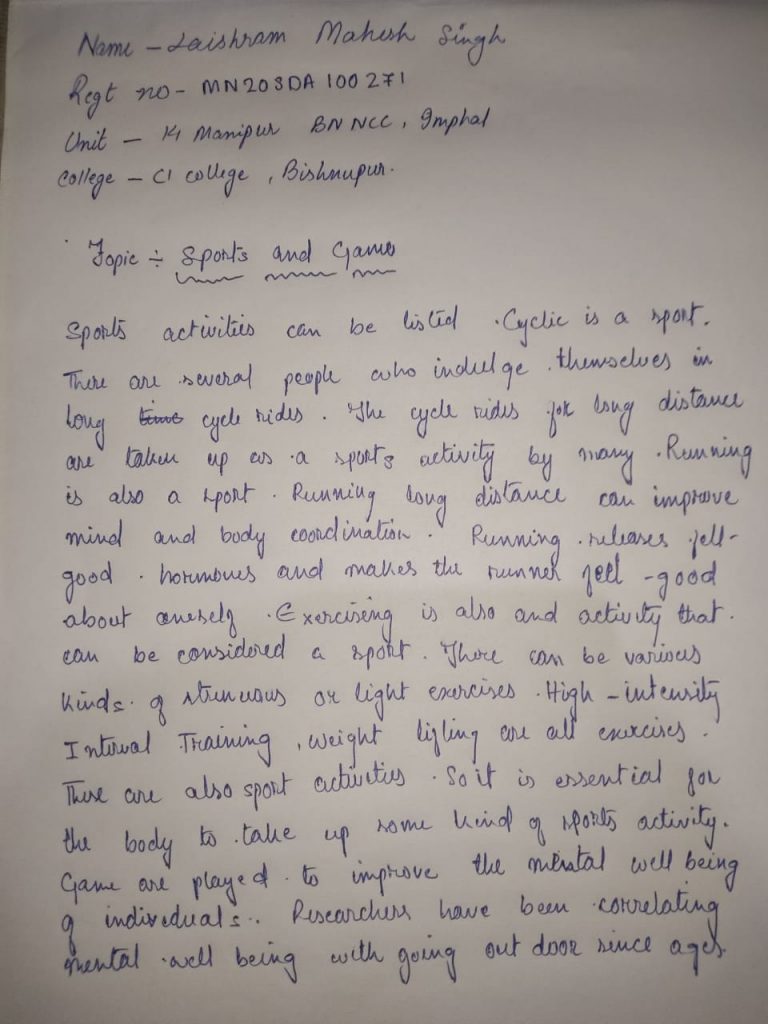 Name - Laishram Mahesh Singh
Regt no - MN20SDA100271
Unit - 14 Manipur BN NCC, Imphal
College - CI college, Bishnupur.
Topic ÷ Sports and Game
Sports activities can be listed. Cyclic is a sport.
There are several people who indulge themselves in
long time cycle rides. The cycle rides for long distance
are taken up as a sports activity by many. Running
is also a sport. Running long distance can improve
mind and body coordination. Running releases fell-
good hormones and makes the runner feel-good
about oneself. Exercising is also and activity that
can be considered a sport. There can be various
kinds of strenuous or light exercises. High-intensity
Interval Training, weight lifting are all exercises.
These are also sport activities. So it is essential for
the body to take up some kind of sports activity.
Game are played to improve the mental well being
of individuals. Researchers have been correlating
mental well being with going out door since ages